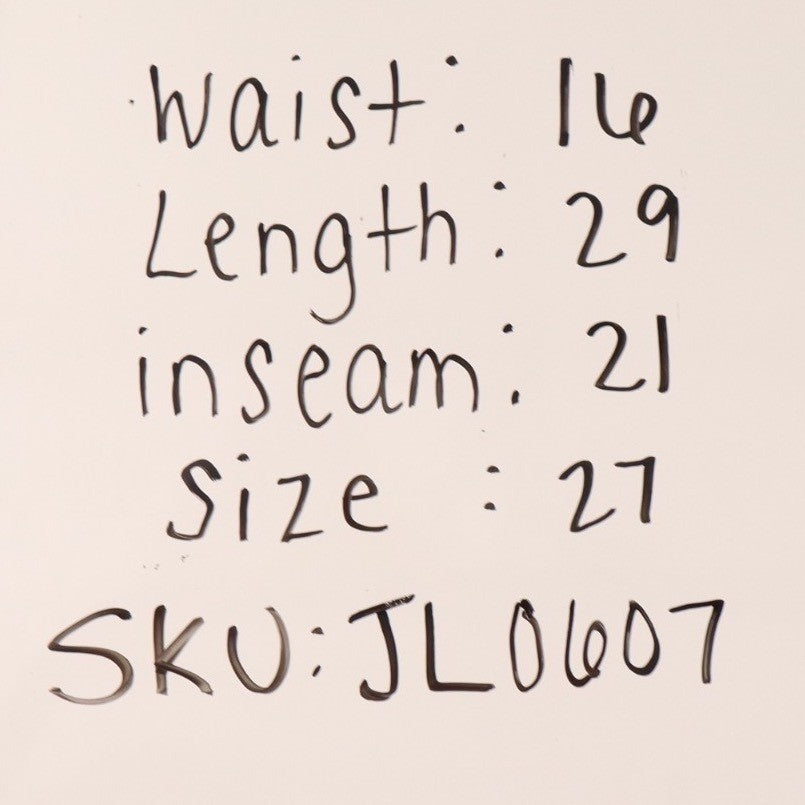 Waist: 16
Length: 29
inseam: 21
Size : 27
SKU: JL0607